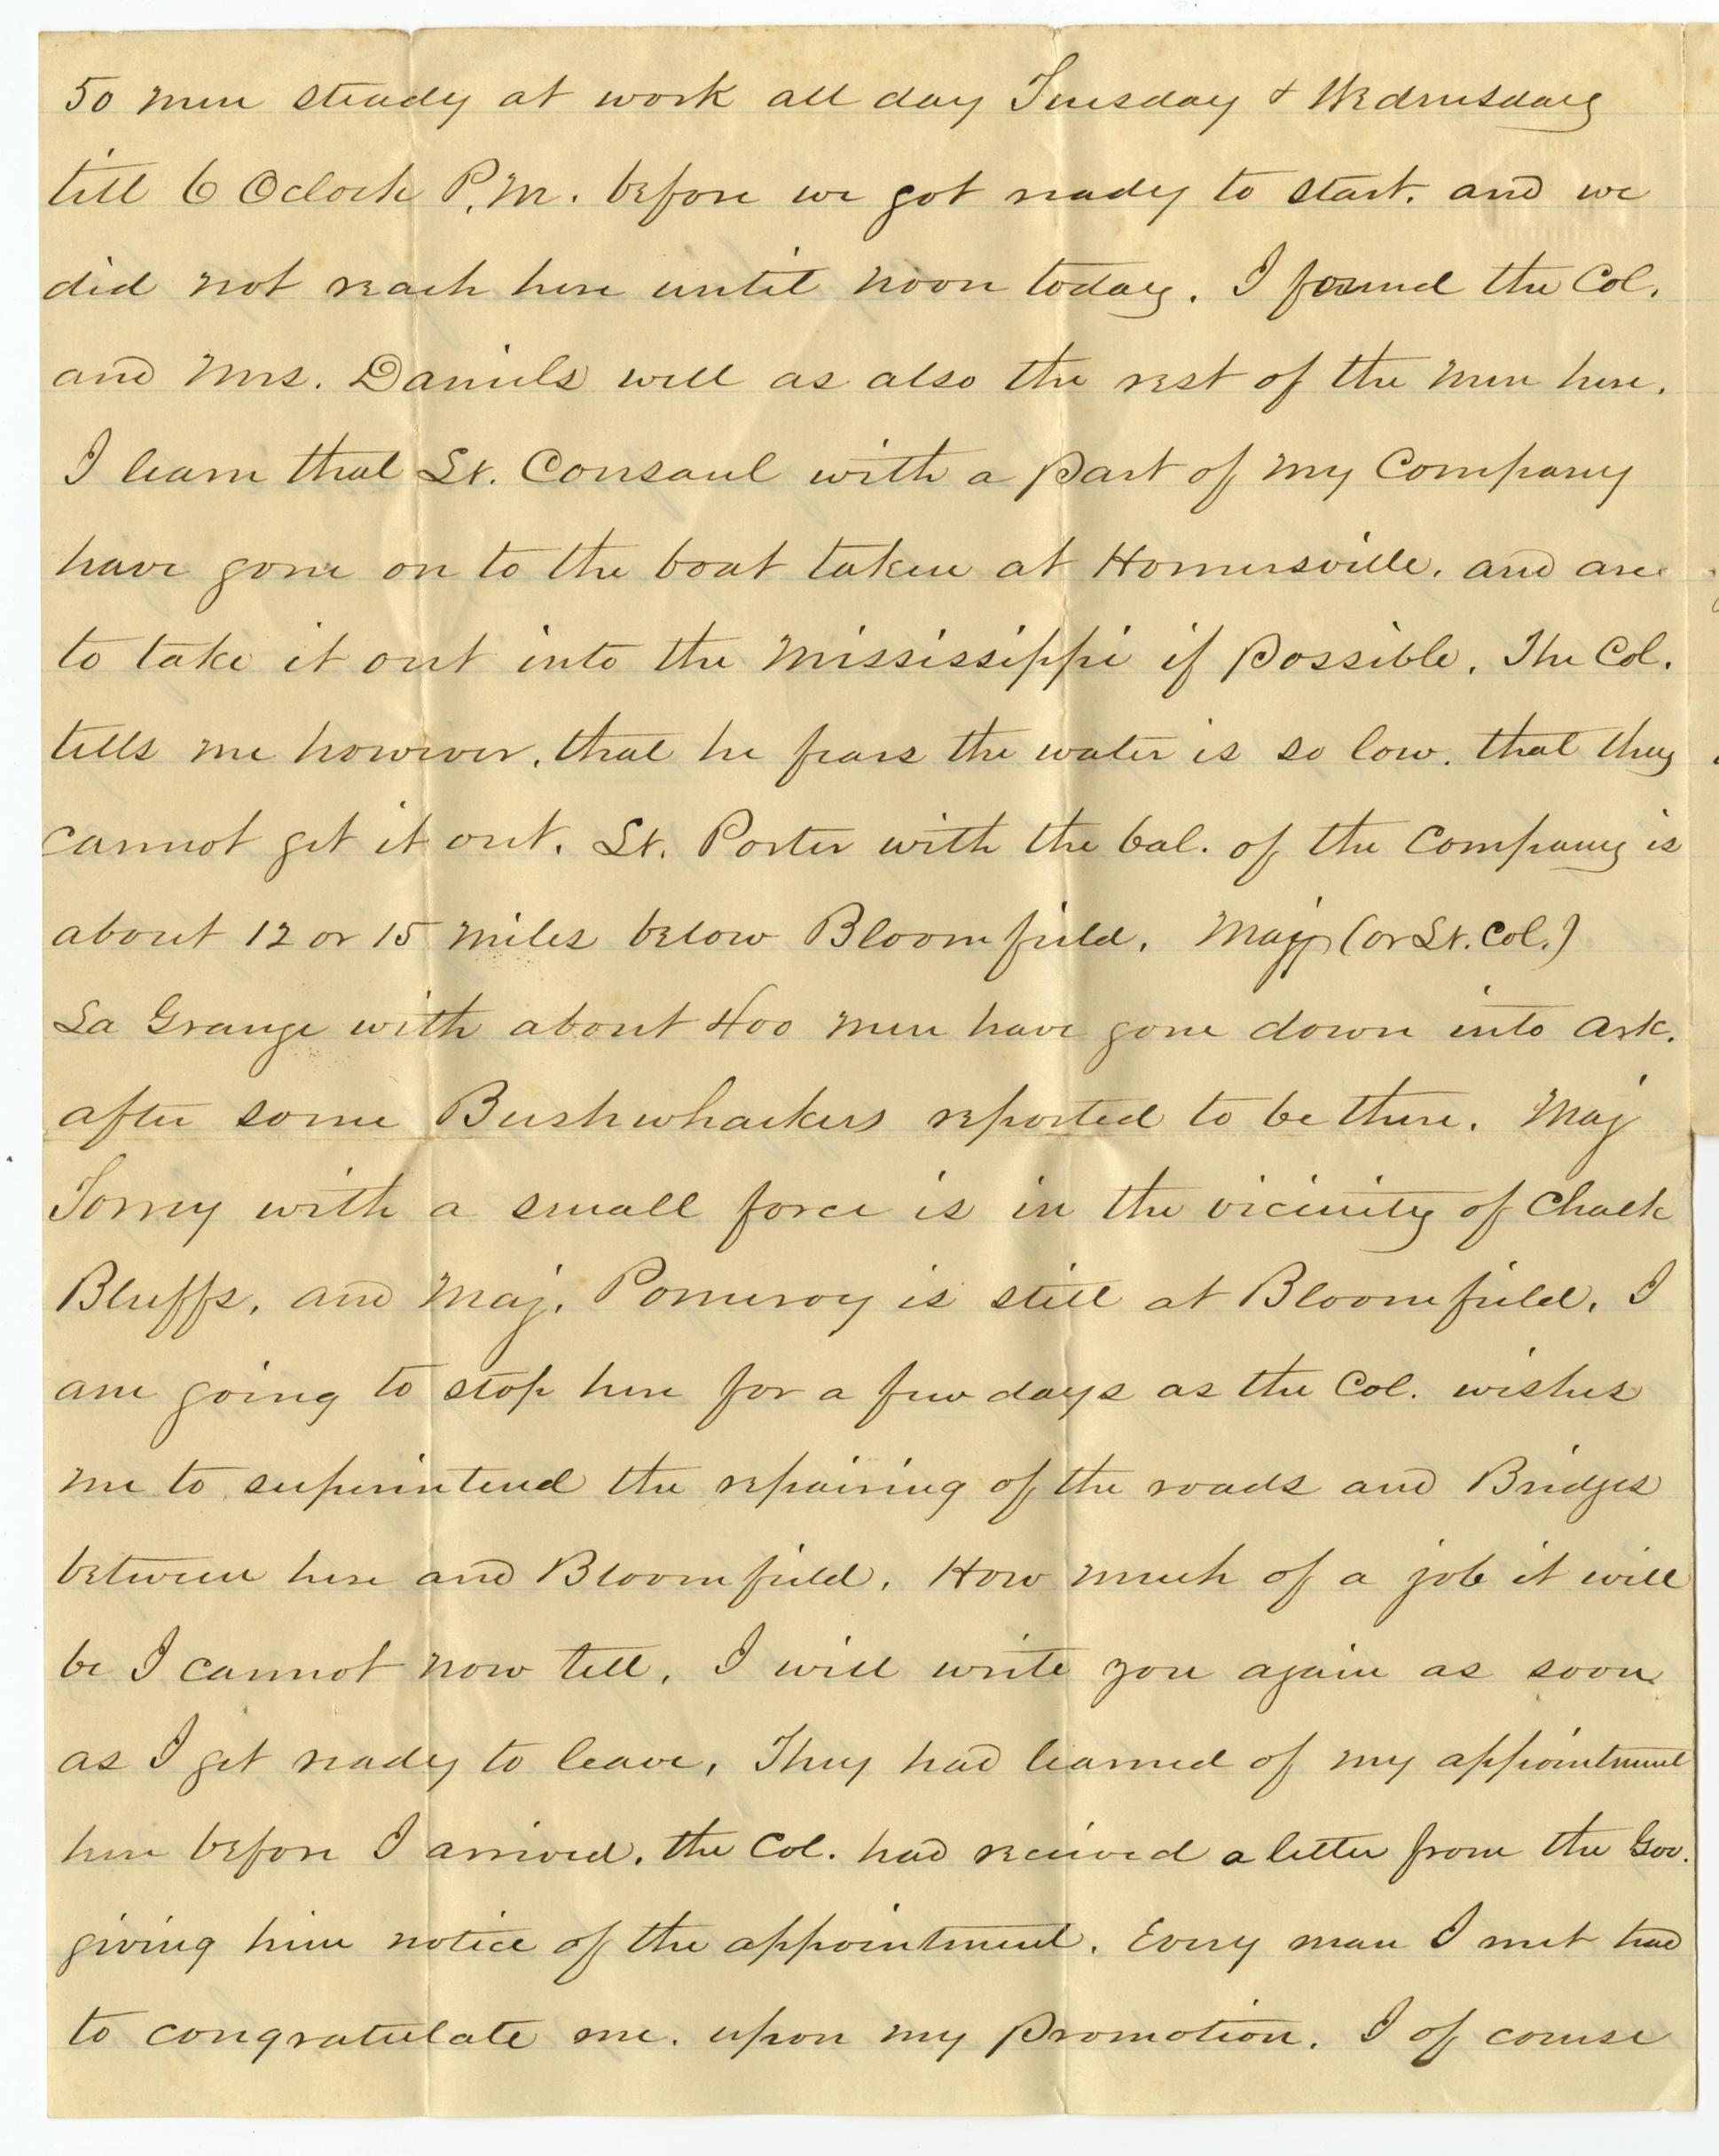 50 men steady at work all day Tuesday & Wednesday
till 6 Oclock P.M. before we got ready to start. and we
did not reach here until noon today. I found the Col.
and Mrs. Daniels well as also the rest of the men here.
I learn that Lt. Consaul with a part of my Company
have gone on to the boat taken at Hornersville. and are
to take it out into the Mississippi if possible. The Col.
tells me however, that he fears the water is so low. that they
cannot get it out. Lt. Porter with the bal. of the Company is
about 12 or 15 miles below Bloomfield. Maj (or Lt. Col.)
La Grange with about 400 men have gone down into Ark.
after some Bushwhackers reported to be there. Maj
Torrey with a small force is in the vicinity of Chalk
Bluffs, and Maj. Pomeroy is still at Bloomfield. I
am going to stop here for a few days as the Col. wishes
me to superintend the repairing of the roads and Bridges
between here and Bloomfield. How much of a job it will
be I cannot now tell. I will write you again as soon
as I get ready to leave. They had learned of my appointment
here before I arrived. the Col. had received a letter from the Gov.
giving him notice of the appointment. Every man I met had
to congratulate me. upon my promotion. I of course